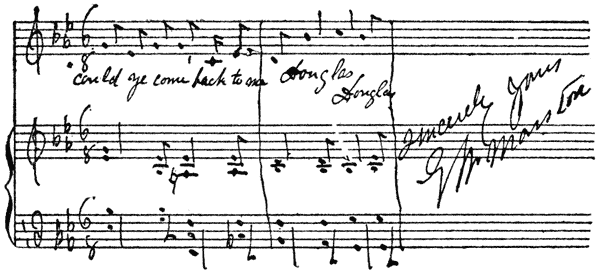 could ye come back to me Douglas
Douglas
Sincerely Yours
G W Marston